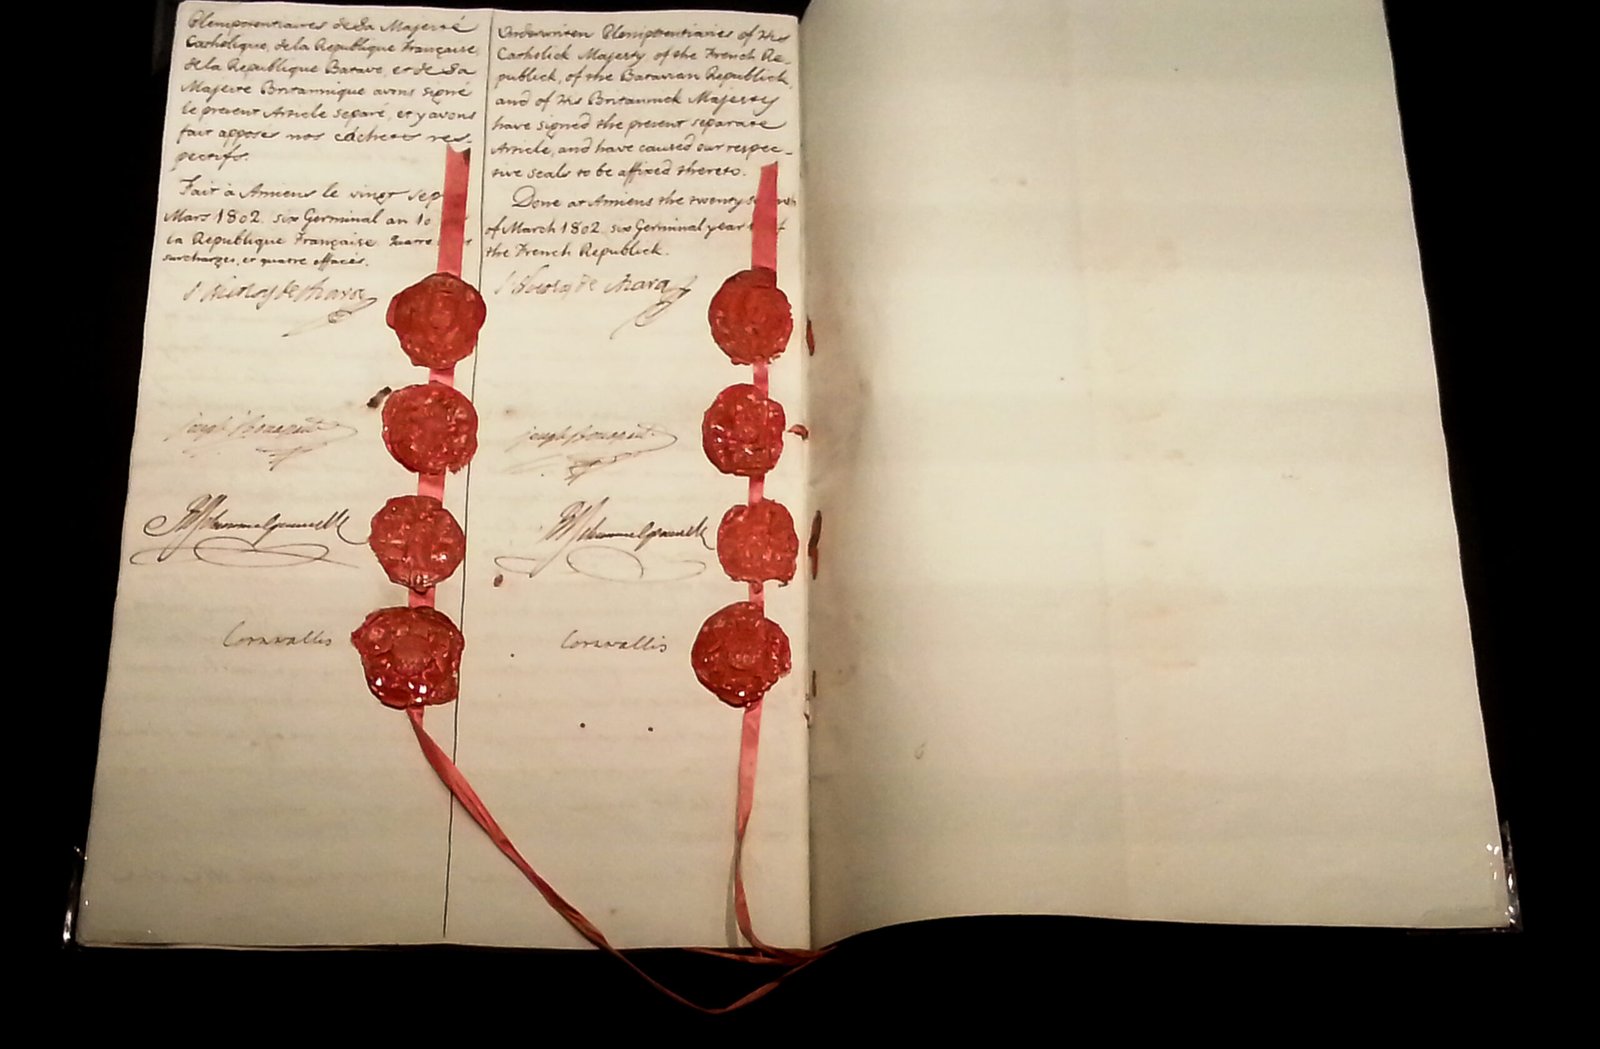 Plenipotentiaires de Sa Majesté
Catholique, de la Republique Française,
de la Republique Batave, et de Sa
Majesté Britannique avons signé
le present Article separé, et y avons
fait apposer nos cachets res-
pectifs.
Fait à Amiens le vingt sept
Mars 1802. six Germinal an 10
la Republique Française. quatre
surchargés, et quatre effacés.
J. Nicolas de Azara
Joseph Bonaparte
RJSchimmelpenninck
Cornwallis
Underwritten Plenipotentiaries of His
Catholick Majesty, of the French Re-
publick, of the Batavian Republick,
and of His Britannick Majesty
have signed the present separate
Article, and have caused our respec-
tive seals to be affixed thereto.
Done at Amiens the twenty
of March 1802. six Germinal year
the French Republick.
J. Nicolas de Azara
Joseph Bonaparte
RJSchimmelpenninck
Cornwallis